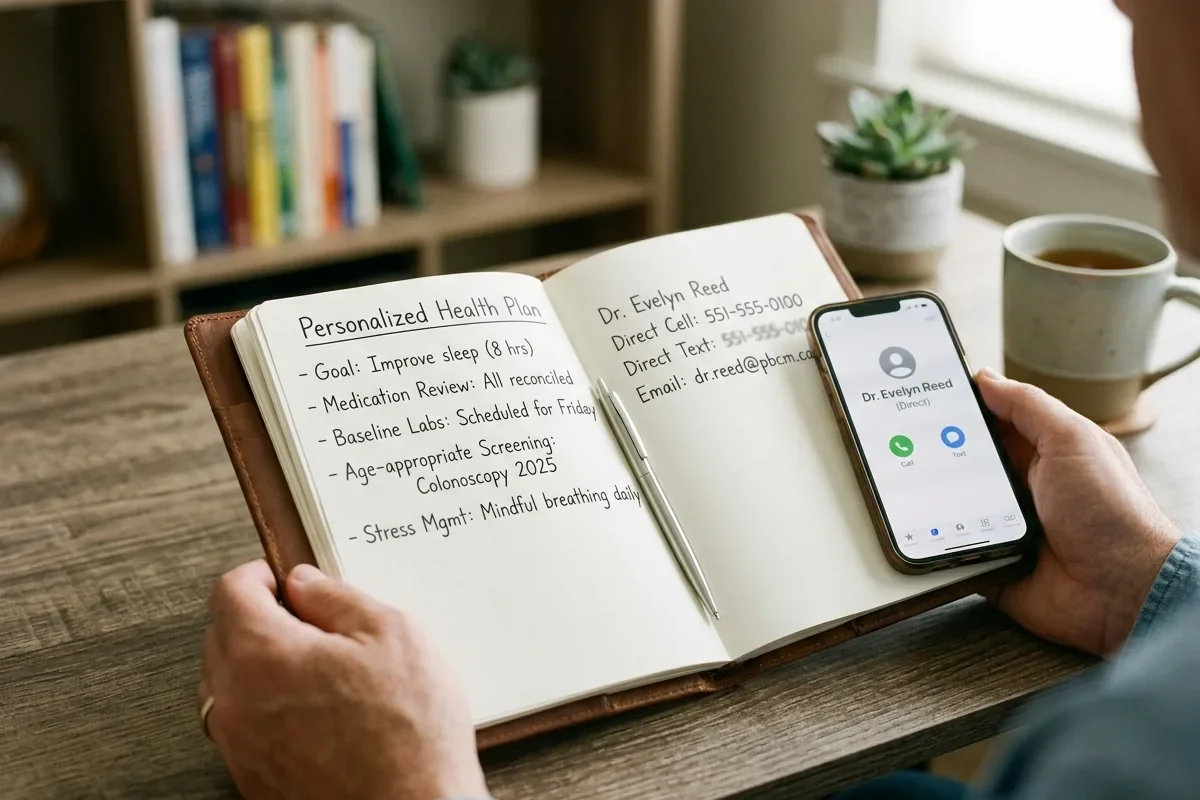 Personalized Health Plan
- Goal: Improve sleep (8 hrs)
- Medication Review: All reconciled
- Baseline Labs: Scheduled for Friday
- Age-appropriate Screening:
Colonoscopy 2025
- Stress Mgmt: Mindful breathing daily
Dr. Evelyn Reed
Direct Cell: 551-555-0100
Direct Text: 551-555-010
Email: dr.reed@pbcm.ca
Dr. Evelyn Reed
(Direct)
Call
Text